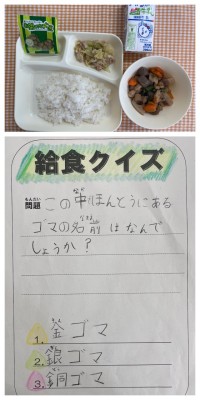 給食クイズ
問題 この中ほんとうにある
ゴマの名前はなんで
しょうか？
1. 金ゴマ
2. 銀ゴマ
3. 銅ゴマ